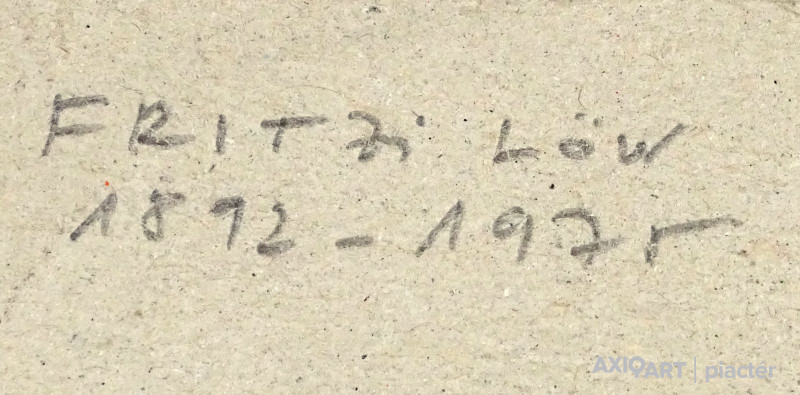 FRITZi Löw
1892-1975
AXIOART | piactér